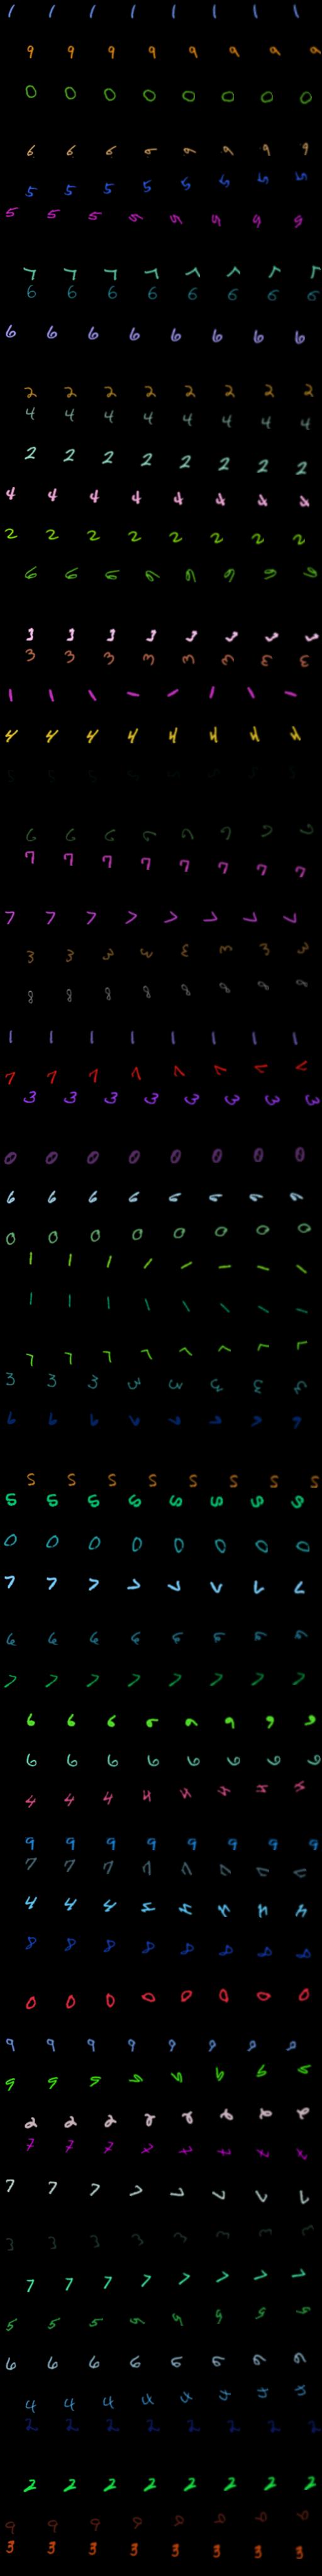 1 1 1 1 1 1 1 1
9 9 9 9 9 9 9 9
0 0 0 0 0 0 0 0
6 6 6 6 6 6 6 6
5 5 5 5 5 5 5 5
5 5 5 5 5 5 5 5
7 7 7 7 7 7 7 7
6 6 6 6 6 6 6 6
6 6 6 6 6 6 6 6
2 2 2 2 2 2 2 2
4 4 4 4 4 4 4 4
2 2 2 2 2 2 2 2
4 4 4 4 4 4 4 4
2 2 2 2 2 2 2 2
6 6 6 6 6 6 6 6
3 3 3 3 3 3 3 3
3 3 3 3 3 3 3 3
1 1 1 1 1 1 1 1
4 4 4 4 4 4 4 4
6 6 6 6 6 6 6 6
7 7 7 7 7 7 7 7
7 7 7 7 7 7 7 7
3 3 3 3 3 3 3 3
8 8 8 8 8 8 8 8
1 1 1 1 1 1 1 1
7 7 7 7 7 7 7 7
3 3 3 3 3 3 3 3
0 0 0 0 0 0 0 0
6 6 6 6 6 6 6 6
0 0 0 0 0 0 0 0
1 1 1 1 1 1 1 1
1 1 1 1 1 1 1 1
7 7 7 7 7 7 7 7
3 3 3 3 3 3 3 3
6 6 6 6 6 6 6 6
5 5 5 5 5 5 5 5
5 5 5 5 5 5 5 5
0 0 0 0 0 0 0 0
7 7 7 7 7 7 7 7
6 6 6 6 6 6 6 6
7 7 7 7 7 7 7 7
6 6 6 6 6 6 6 6
6 6 6 6 6 6 6 6
4 4 4 4 4 4 4 4
9 9 9 9 9 9 9 9
7 7 7 7 7 7 7 7
4 4 4 4 4 4 4 4
8 8 8 8 8 8 8 8
0 0 0 0 0 0 0 0
9 9 9 9 9 9 9 9
9 9 9 9 9 9 9 9
2 2 2 2 2 2 2 2
7 7 7 7 7 7 7 7
7 7 7 7 7 7 7 7
3 3 3 3 3 3 3 3
7 7 7 7 7 7 7 7
5 5 5 5 5 5 5 5
6 6 6 6 6 6 6 6
4 4 4 4 4 4 4 4
2 2 2 2 2 2 2 2
2 2 2 2 2 2 2 2
9 9 9 9 9 9 9 9
3 3 3 3 3 3 3 3